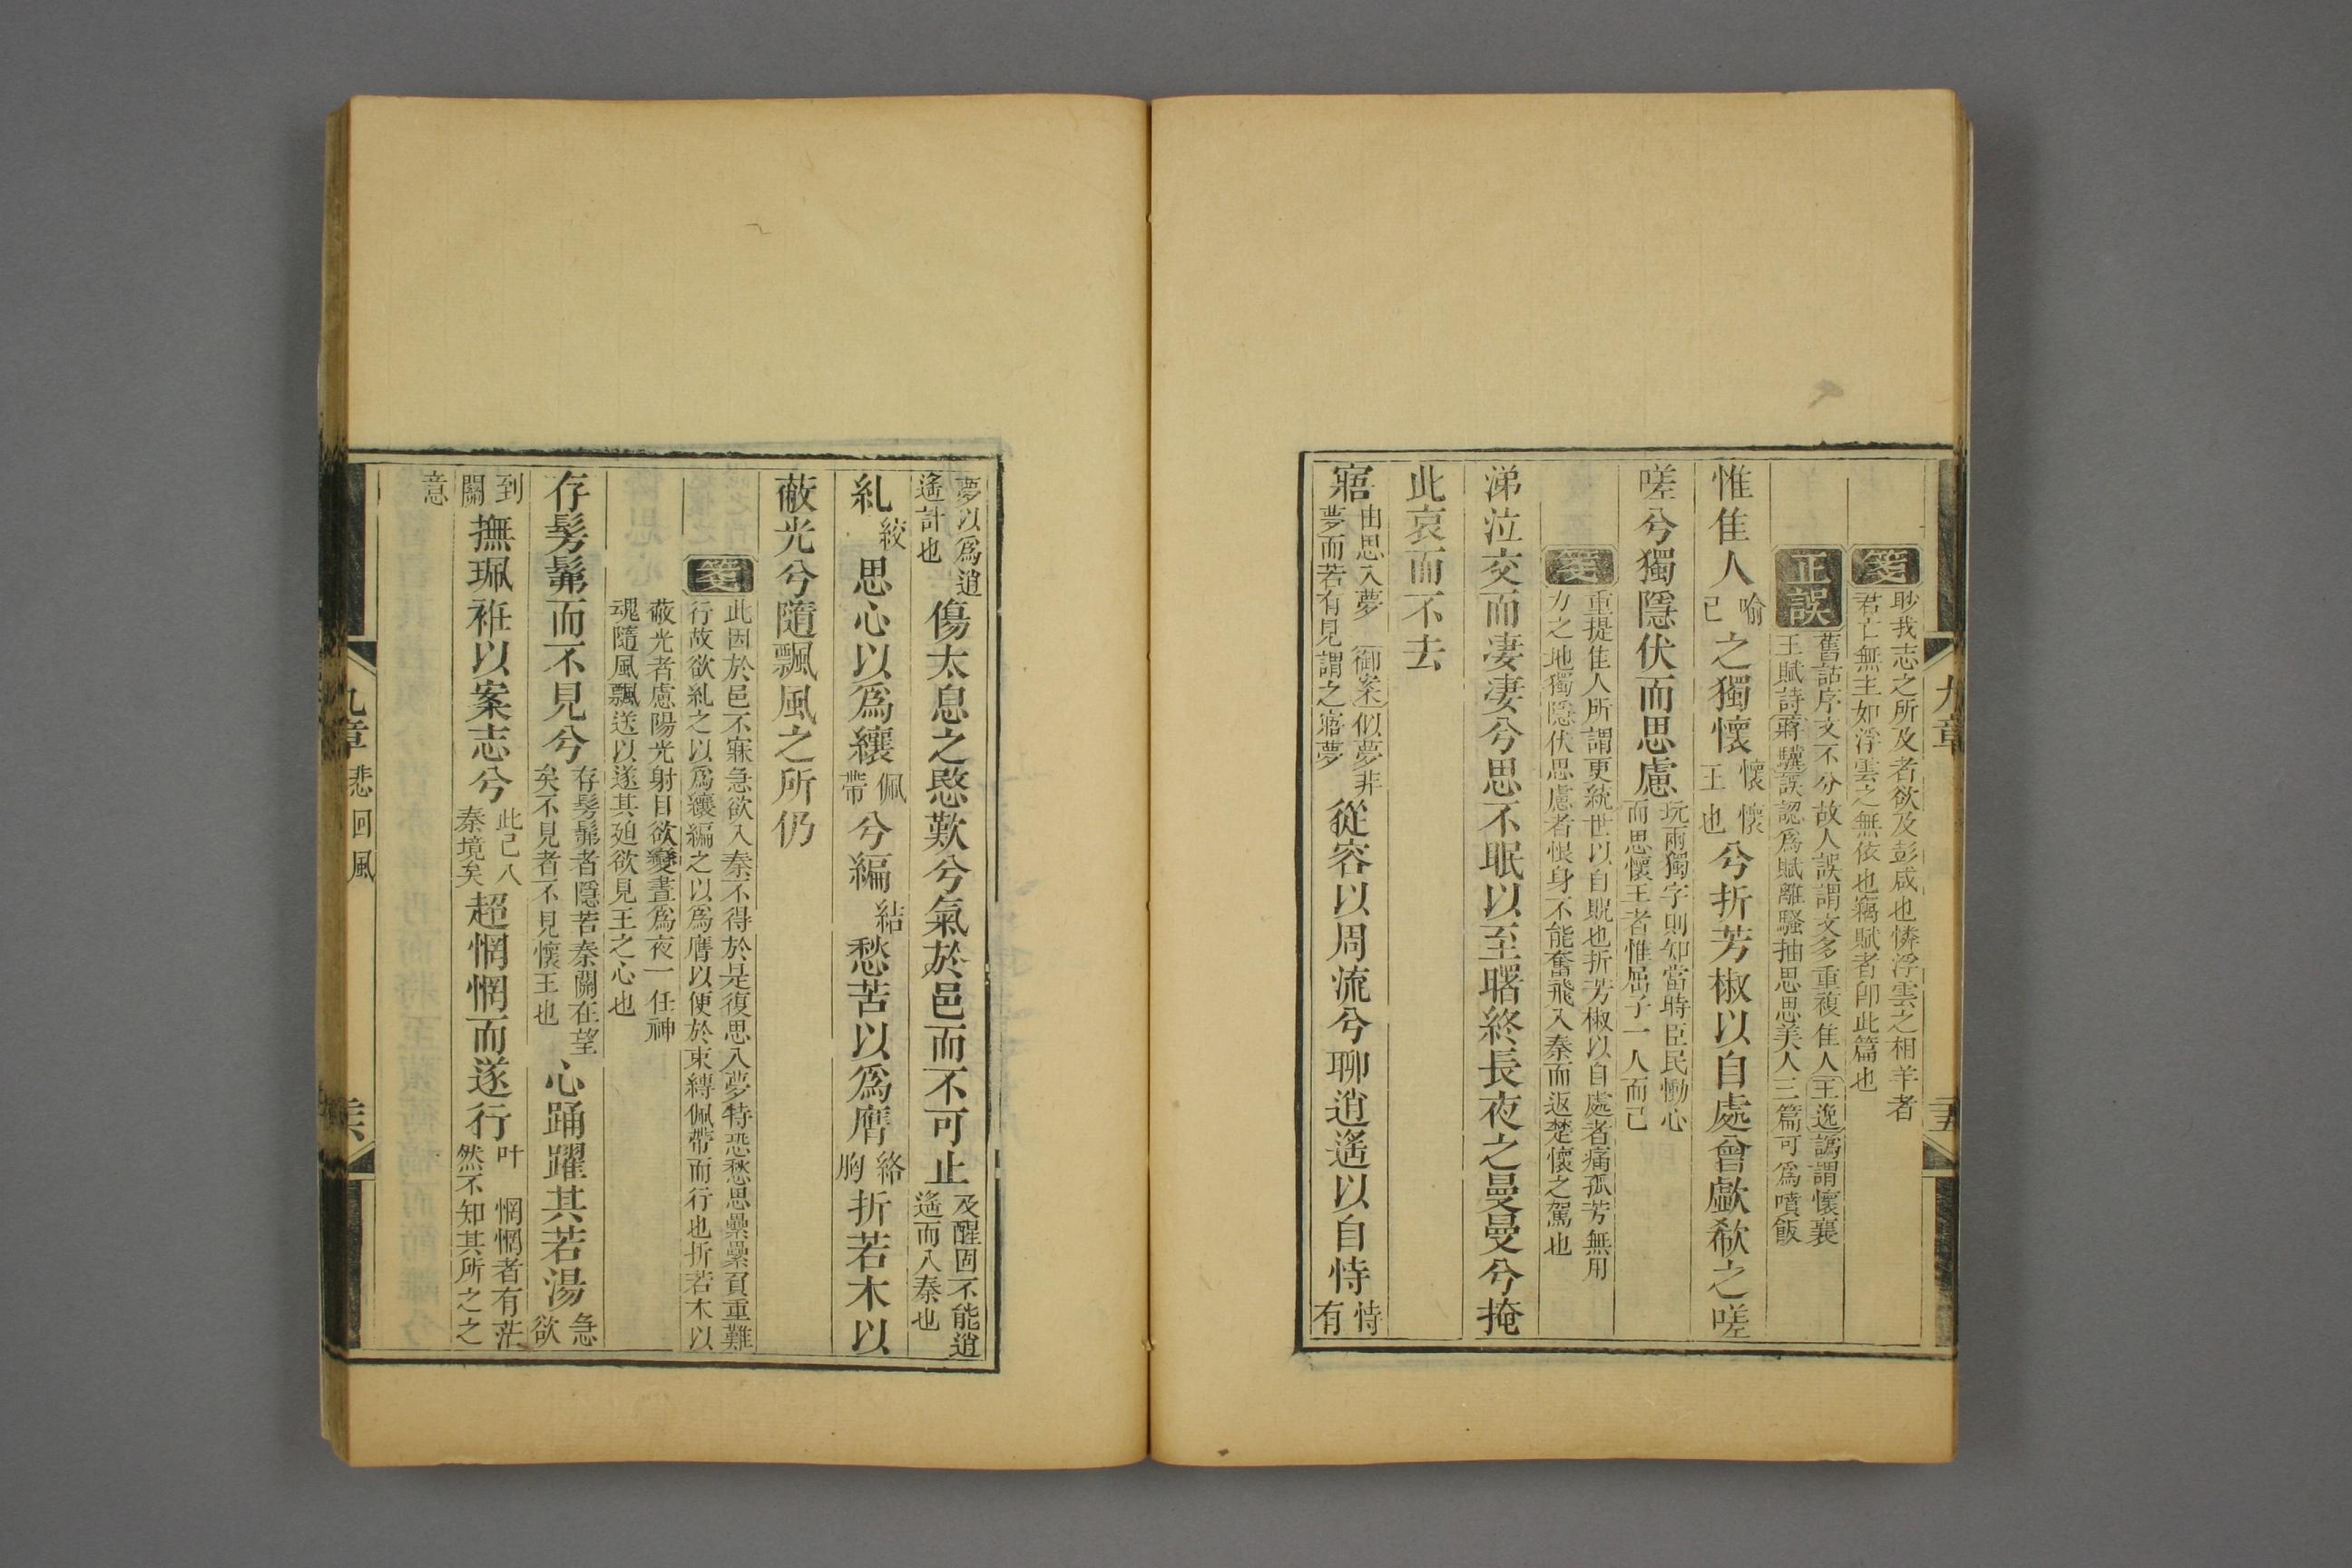 箋
眇我志之所及者欲及彭咸也憐浮雲之相羊者
君亡無主如浮雲之無依也竊賦者卽此篇也
正誤
舊詁序文不分故人誤謂文多重複隹人王逸譌謂懷襄
王賦詩蔣驥誤認爲賦離騷抽思思美人三篇可爲噴飯
惟隹人喻己之獨懷懷王懷也兮折芳椒以自處曾歔欷之嗟
嗟兮獨隱伏而思慮玩兩獨字則知當時臣民慟心而思懷王者惟屈子一人而已
箋
重提隹人所謂更統世以自貺也折芳椒以自處者痛孤芳無用
力之地獨隱伏思慮者恨身不能奮飛入秦而返楚懷之駕也
涕泣交而凄凄兮思不眠以至曙終長夜之曼曼兮掩
此哀而不去
寤由思入夢御案似夢非夢而若有見謂之寤夢從容以周流兮聊逍遙以自恃恃有
夢以爲逍遙計也傷太息之愍歎兮氣於邑而不可止及醒固不能逍遙而入秦也
糺絞思心以爲纕佩帶兮編結愁苦以爲膺絡胸折若木以
蔽光兮隨飄風之所仍
箋
此因於邑不寐急欲入秦不得於是復思入夢特恐愁思纍纍負重難
行故欲糺之以爲纕編之以爲膺以便於束縛佩帶而行也折若木以
蔽光者慮陽光射目欲變晝爲夜一任神
魂隨風飄送以遂其廹欲見王之心也
存髣髴而不見兮存髣髴者隱若秦關在望矣不見者不見懷王也心踊躍其若湯急欲
到關撫珮衽以案志兮此已入秦境矣超惘惘而遂行叶 惘惘者有茫然不知其所之之
意
九章
五
九章 悲回風